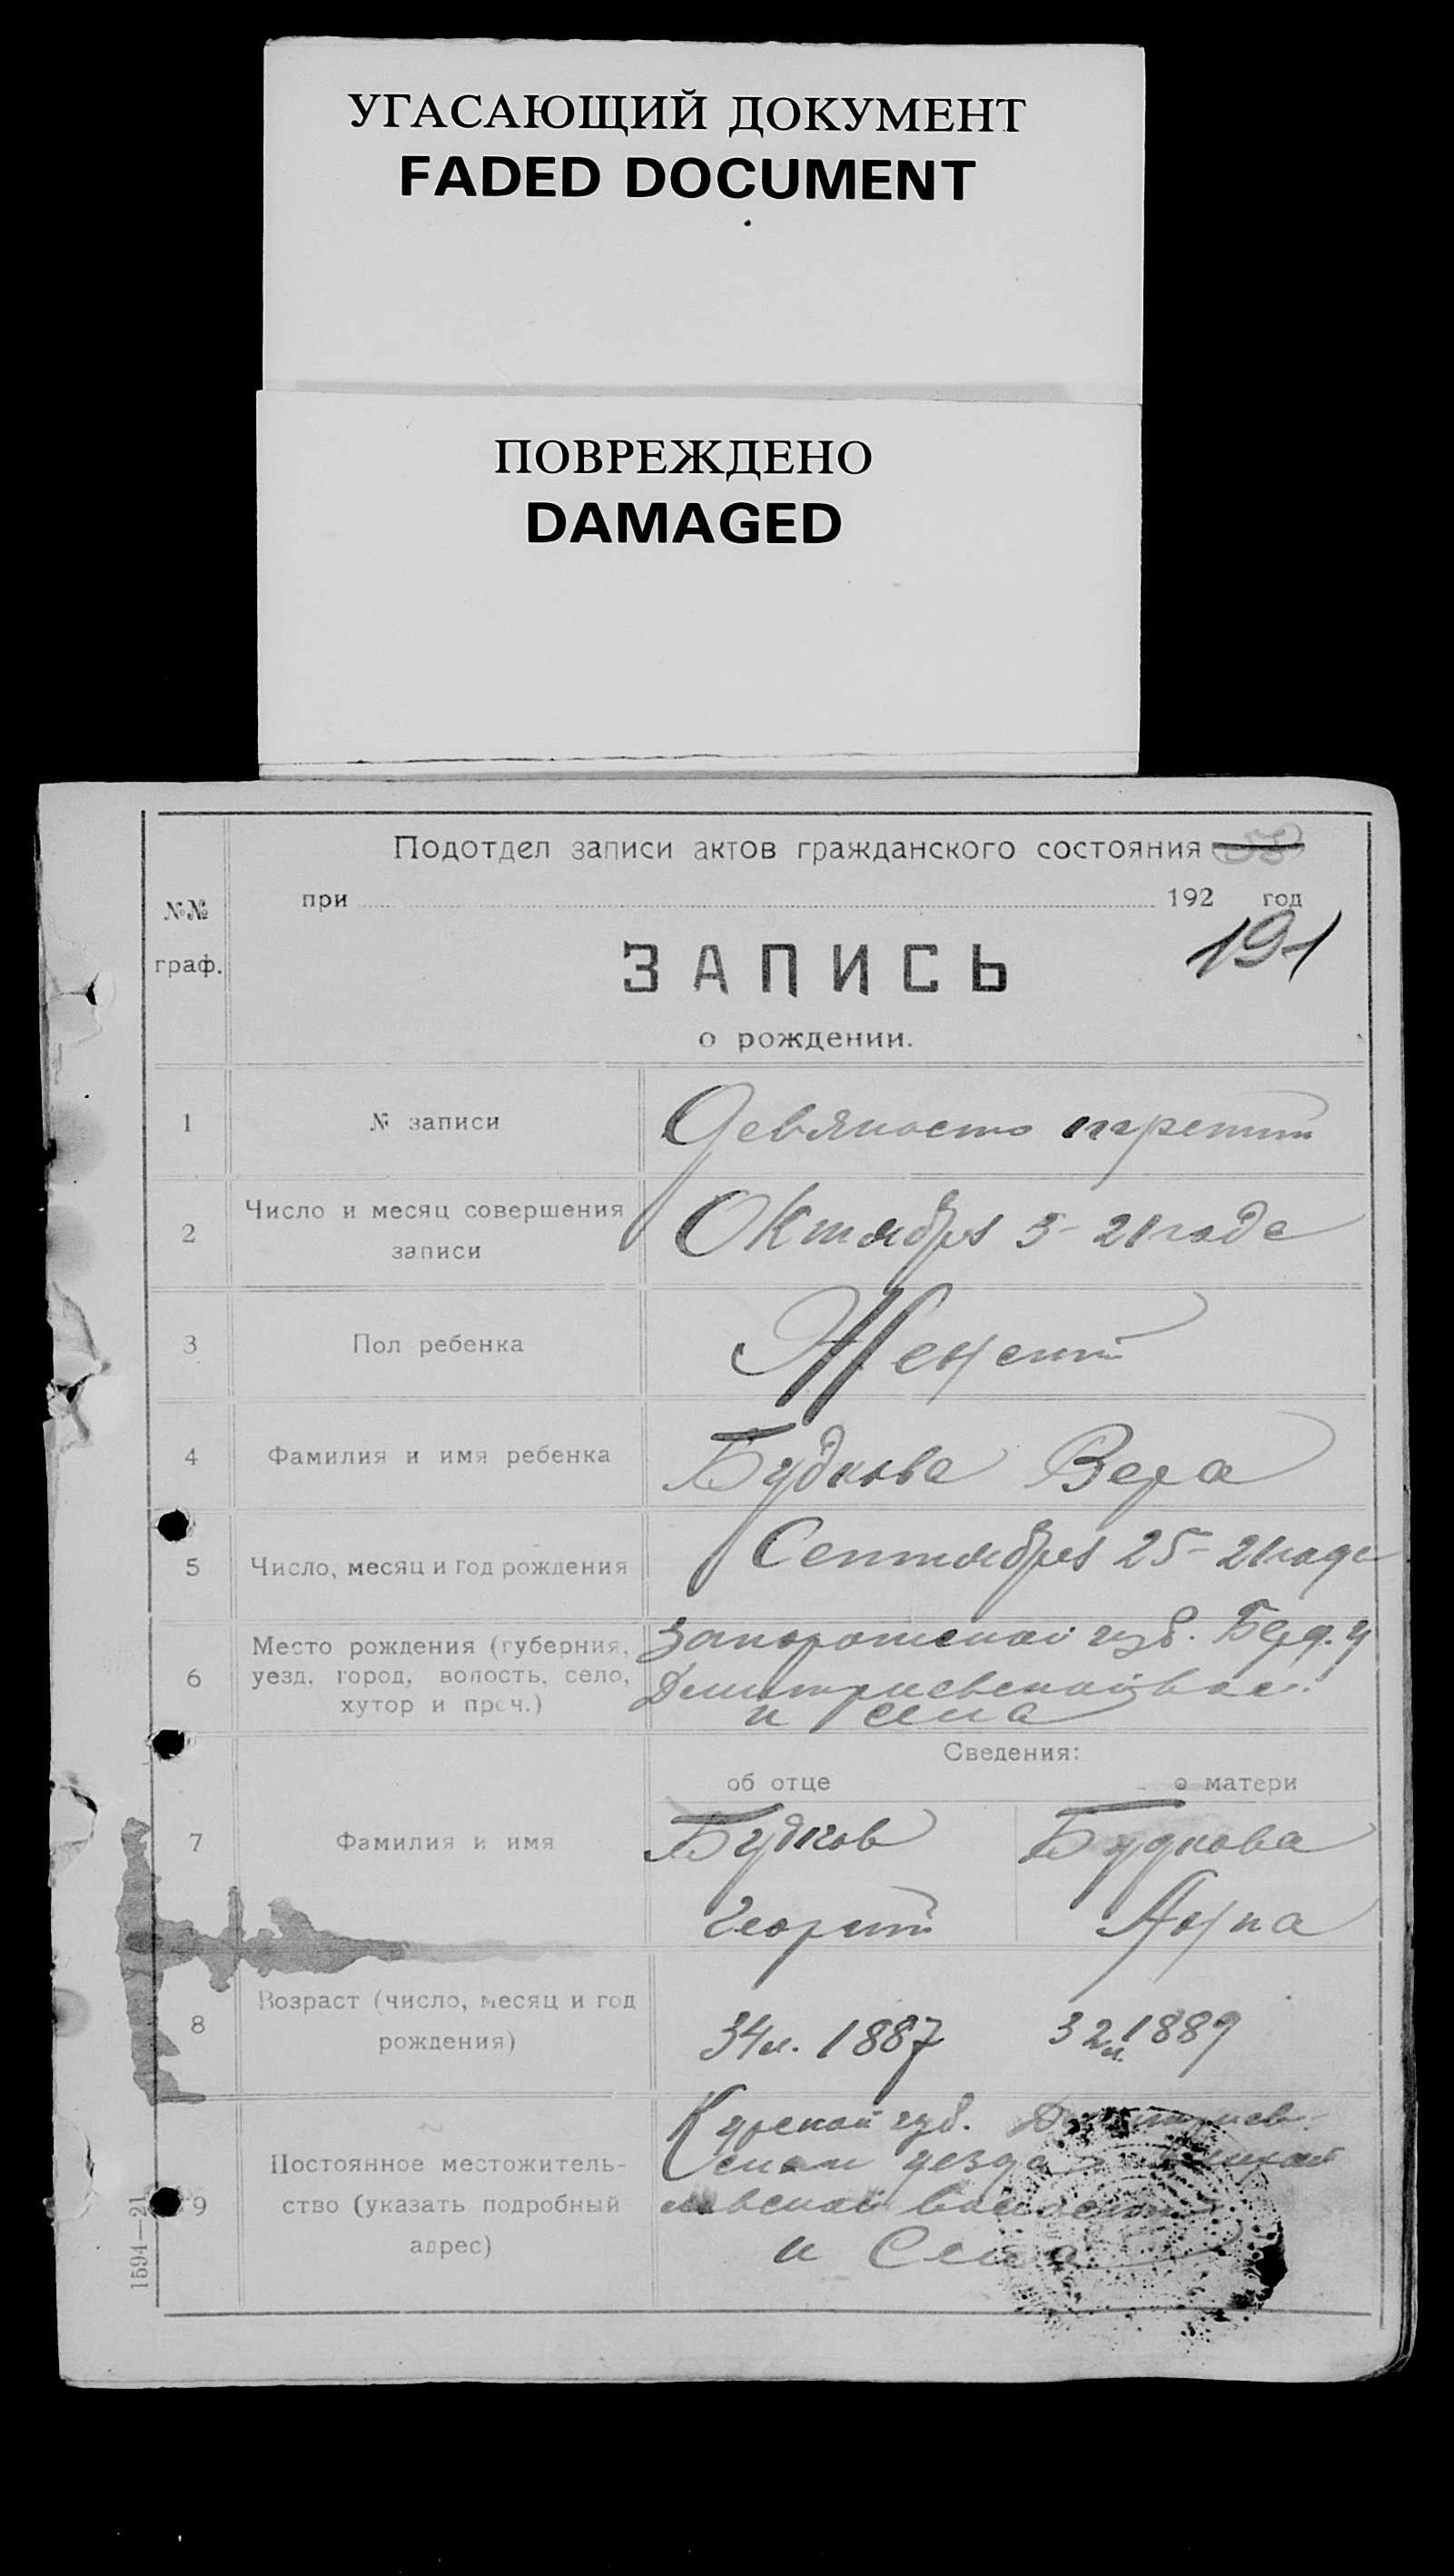 УГАСАЮЩИЙ ДОКУМЕНТ
FADED DOCUMENT
ПОВРЕЖДЕНО
DAMAGED
Подотдел записи актов гражданского состояния
при 192 год
№№
граф.
191
ЗАПИСЬ
о рождении.
1 № записи Девяносто
2 Число и месяц совершения
записи
Октября 5- 21 года
3 Пол ребенка Женский
4 Фамилия и имя ребенка Будкова Вера
5 Число, месяц и год рождения Сентября 25- 21 года
6 Место рождения (губерния,
уезд, город, волость, село,
хутор и проч.)
Запорожской губ. Берд. у
Дмитриевской вол.
и села
Сведения:
об отце о матери
7 Фамилия и имя
Будков Будкова
Георгий Анна
8 Возраст (число, месяц и год
рождения)
34 л. 1887 32 л. 1889
9 Постоянное местожитель-
ство (указать подробный
адрес)
Курской губ. Дмитриев-
ской уезда
волости
и Села
1594—21